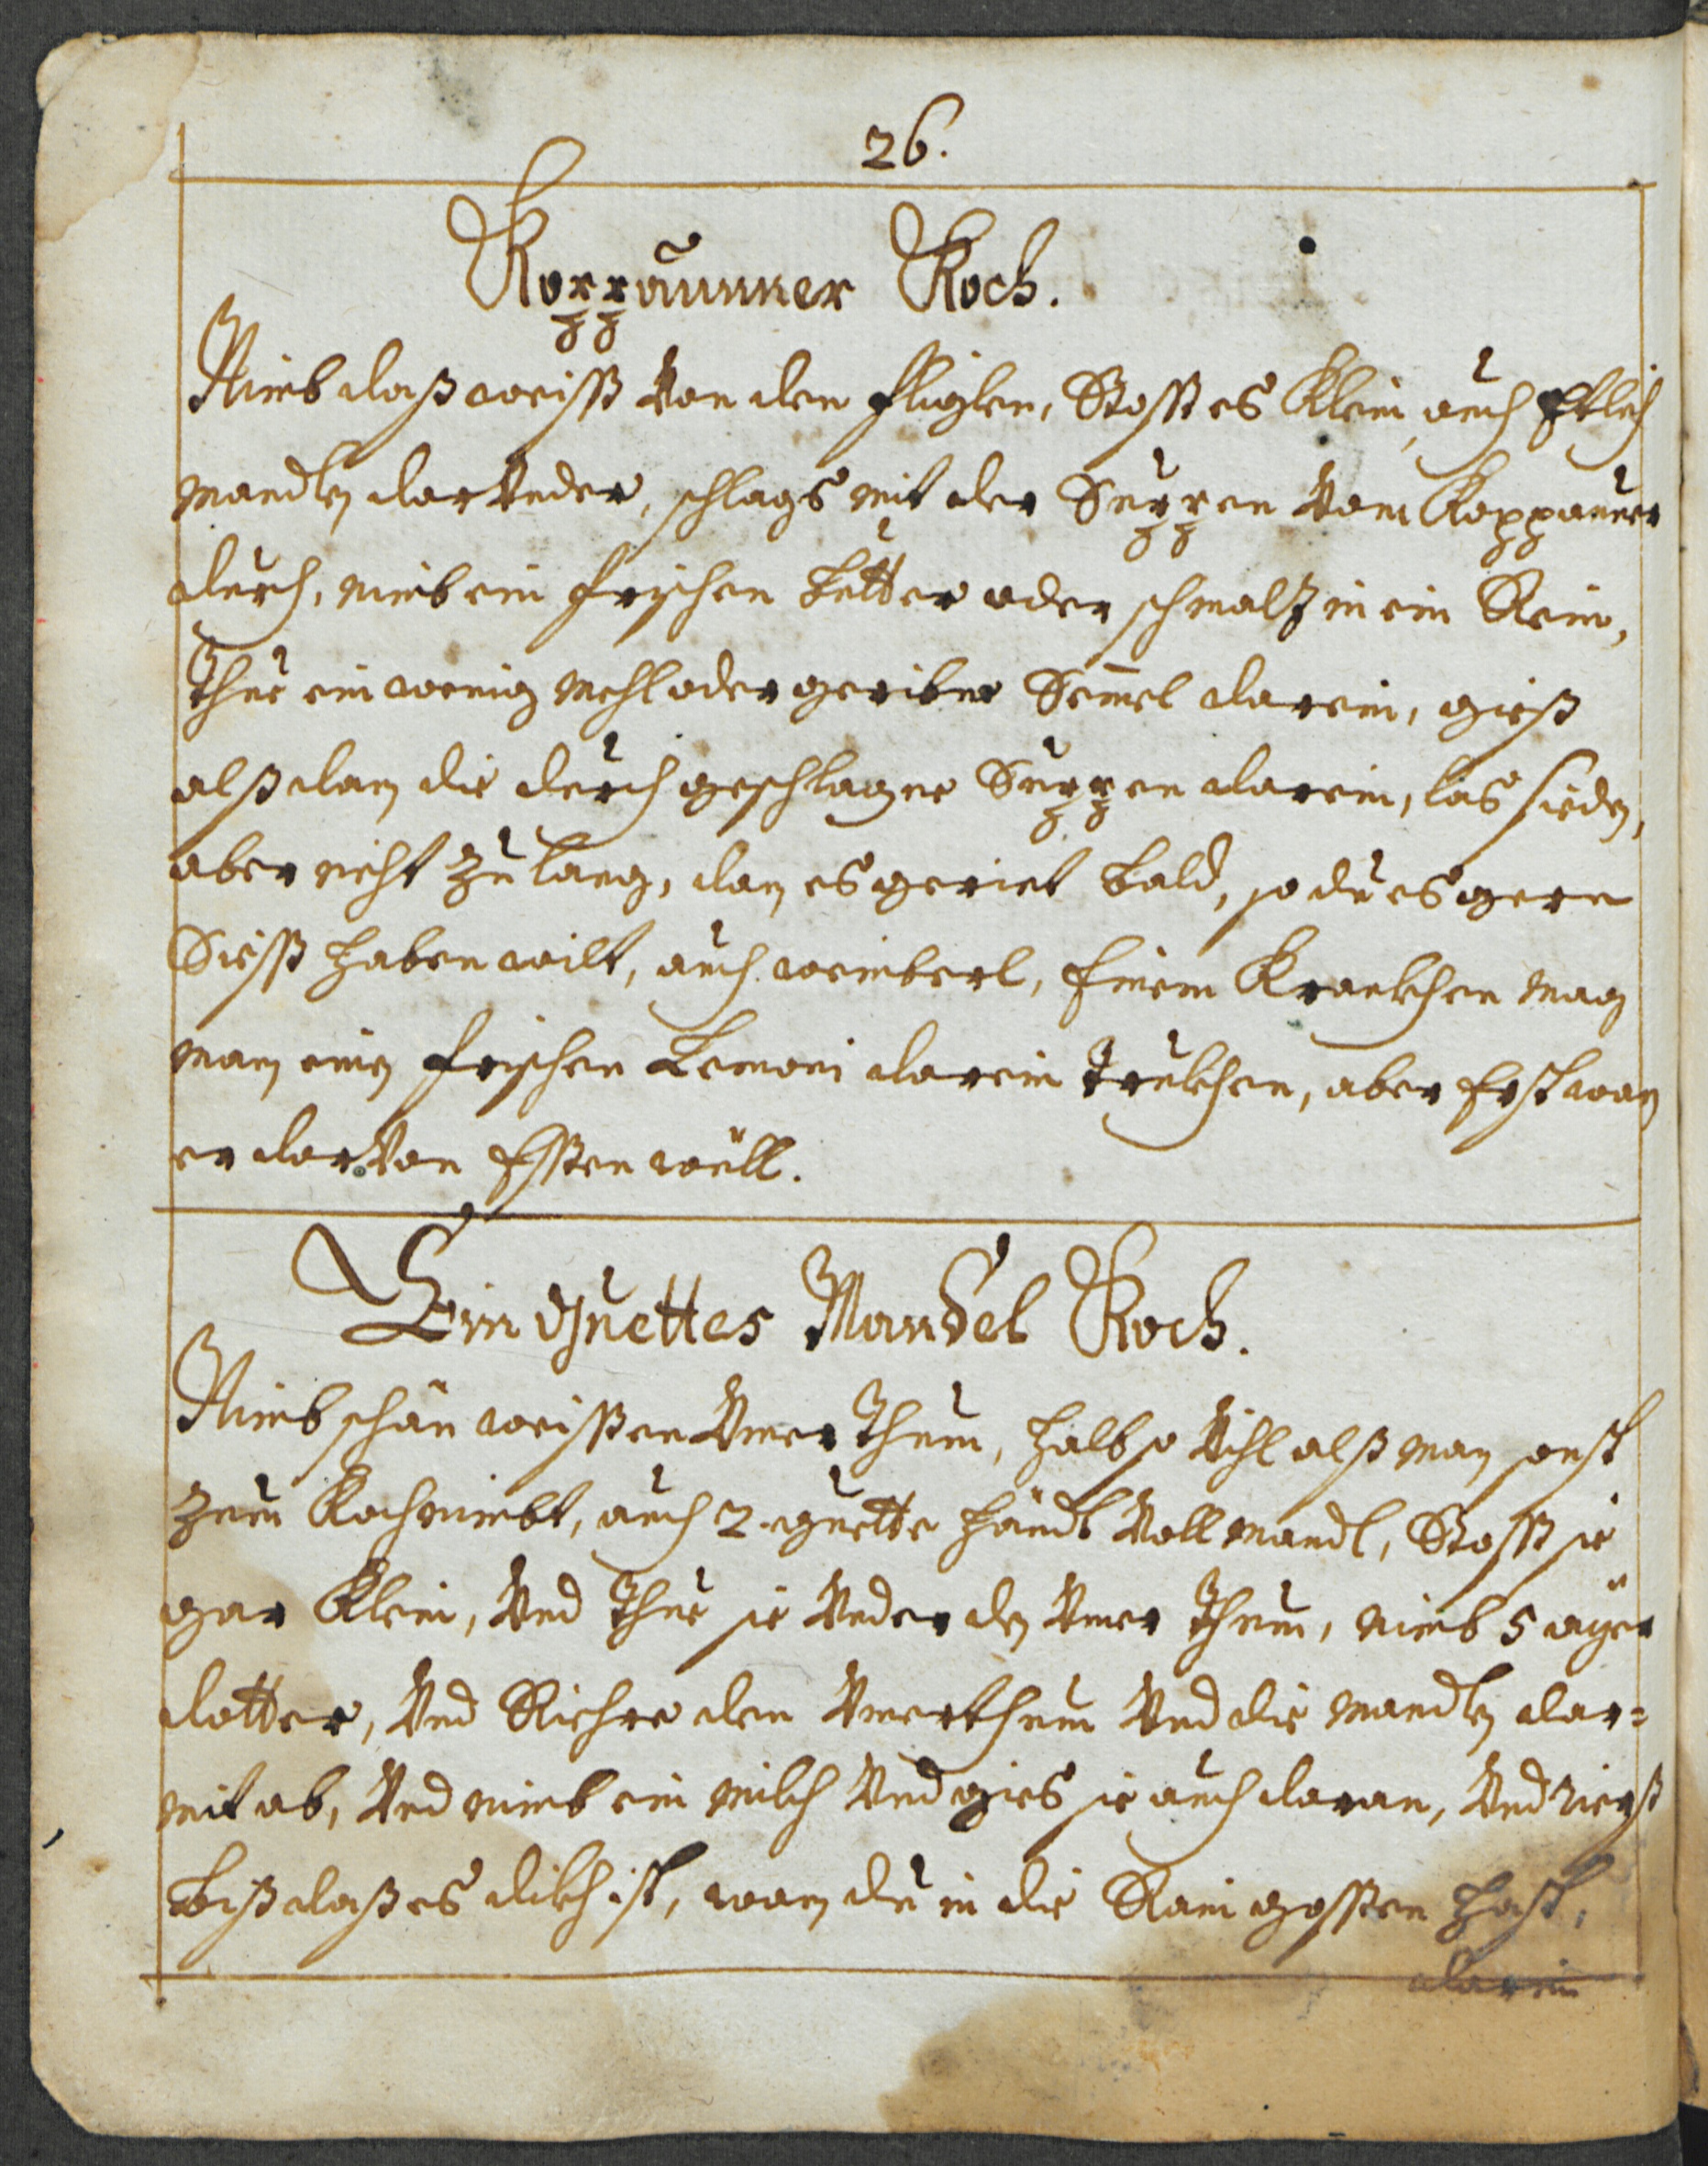 26.
Koppäunner Koch.
Nimb daß weiss Von den fliglen, Stoss es Klein, auch Etlich
mandlen dar Under, schlags mit der Suppen Vom Koppauner
durch, nimb ein frischen Butter oder schmalz in ein Rein,
Thue ein wenig mehl oder geribne Semel darein, gieß
alßdan die durch geschlagne Suppen darein, las sieden,
aber nicht zu lang, dan es geriet bald, so du es gern
Siess haben wilt, auch weinberl, Einem Krankhen mag
man ein frischen Lemoni darein Trukhen, aber Erst wan
er dar Von Essen wüll.
Ein guettes Mandel Koch.
Nimb schön weissen Umer Thum, halb so Vihl alß man sonst
zum Koch nimbt, auch 2 guette händt Voll mandl, Stoss sie
gar Klein, Und Thue sie Under den Umer Thum, nimb 5 ayer
dotter, Und Riehre den Umerthum Und die mandlen dar=
mit ab, Und nimb ein milch Und gies sie auch daran, Und riers
biß daß es dikh ist, wan du in die Rain gossen hast,
darein